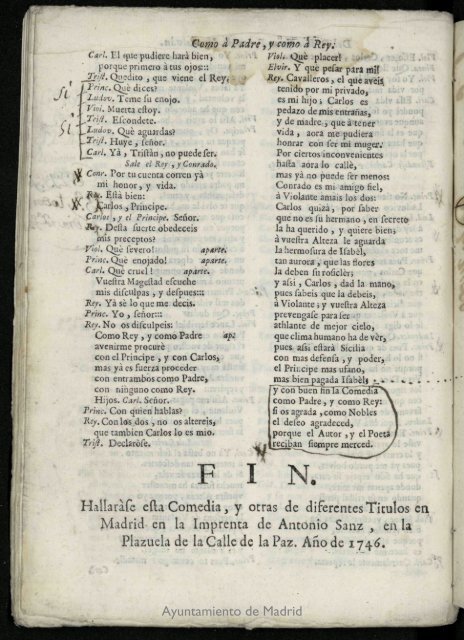 Como à Padre, y como à Rey.
Carl. El que pudiere hará bien,
porque primero à tus ojos:::
Trist. Quedito, que viene el Rey.
Si
Princ. Què dices?
Ludov. Teme su enojo.
Viol. Muerta estoy.
Trist. Escondete.
Si
Ludov. Què aguardas?
Trist. Huye, señor.
Carl. Yà, Tristàn, no puede ser.
Sale el Rey, y Conrado.
Conr. Por tu cuenta corren yà
mi honor, y vida.
Rey. Està bien:
Carlos, Principe.
Carlos, y el Principe. Señor.
Rey. Desta suerte obedeceis
mis preceptos?
Viol. Què severo! aparte.
Princ. Què enojado! aparte.
Carl. Què cruel! aparte.
Vuestra Magestad escuche
mis disculpas, y despues:::
Rey. Yà sè lo que me decis.
Princ. Yo, señor:::
Rey. No os disculpeis:
Como Rey, y como Padre ap.
avenirme procurè
con el Principe, y con Carlos,
mas yà es fuerza proceder
con entrambos como Padre,
con ninguno como Rey.
Hijos. Carl. Señor.
Princ. Con quien hablas?
Rey. Con los dos, no os altereis,
que tambien Carlos lo es mio.
Trist. Declaròse.
Viol. Què placer!
Elvir. Y què pesar para mi!
Rey. Cavalleros, el que aveis
tenido por mi privado,
es mi hijo; Carlos es
pedazo de mis entrañas,
y de madre, que à tener
vida, aora me pudiera
honrar con ser mi muger.
Por ciertos inconvenientes
hasta aora lo callè,
mas yà no puede ser menos:
Conrado es mi amigo fiel,
à Violante amais los dos:
Carlos quizà, por saber
que no es su hermano, en secreto
la ha querido, y quiere bien;
à vuestra Alteza le aguarda
la hermosura de Isabèl,
tan aurora, que las flores
la deben su rosiclèr;
y assi, Carlos, dad la mano,
pues sabeis que la debeis,
à Violante; y vuestra Alteza
prevengase para ser
athlante de mejor cielo,
que clima humano ha de vèr,
pues assi estarà Sicilia
con mas defensa, y poder,
el Principe mas ufano,
mas bien pagada Isabèl;
y con buen fin la Comedia
como Padre, y como Rey:
si os agrada, como Nobles
el deseo agradeced,
porque el Autor, y el Poeta
reciban siempre merced.
FIN.
Hallaràse esta Comedia, y otras de diferentes Titulos en
Madrid en la Imprenta de Antonio Sanz, en la
Plazuela de la Calle de la Paz. Año de 1746.
Ayuntamiento de Madrid